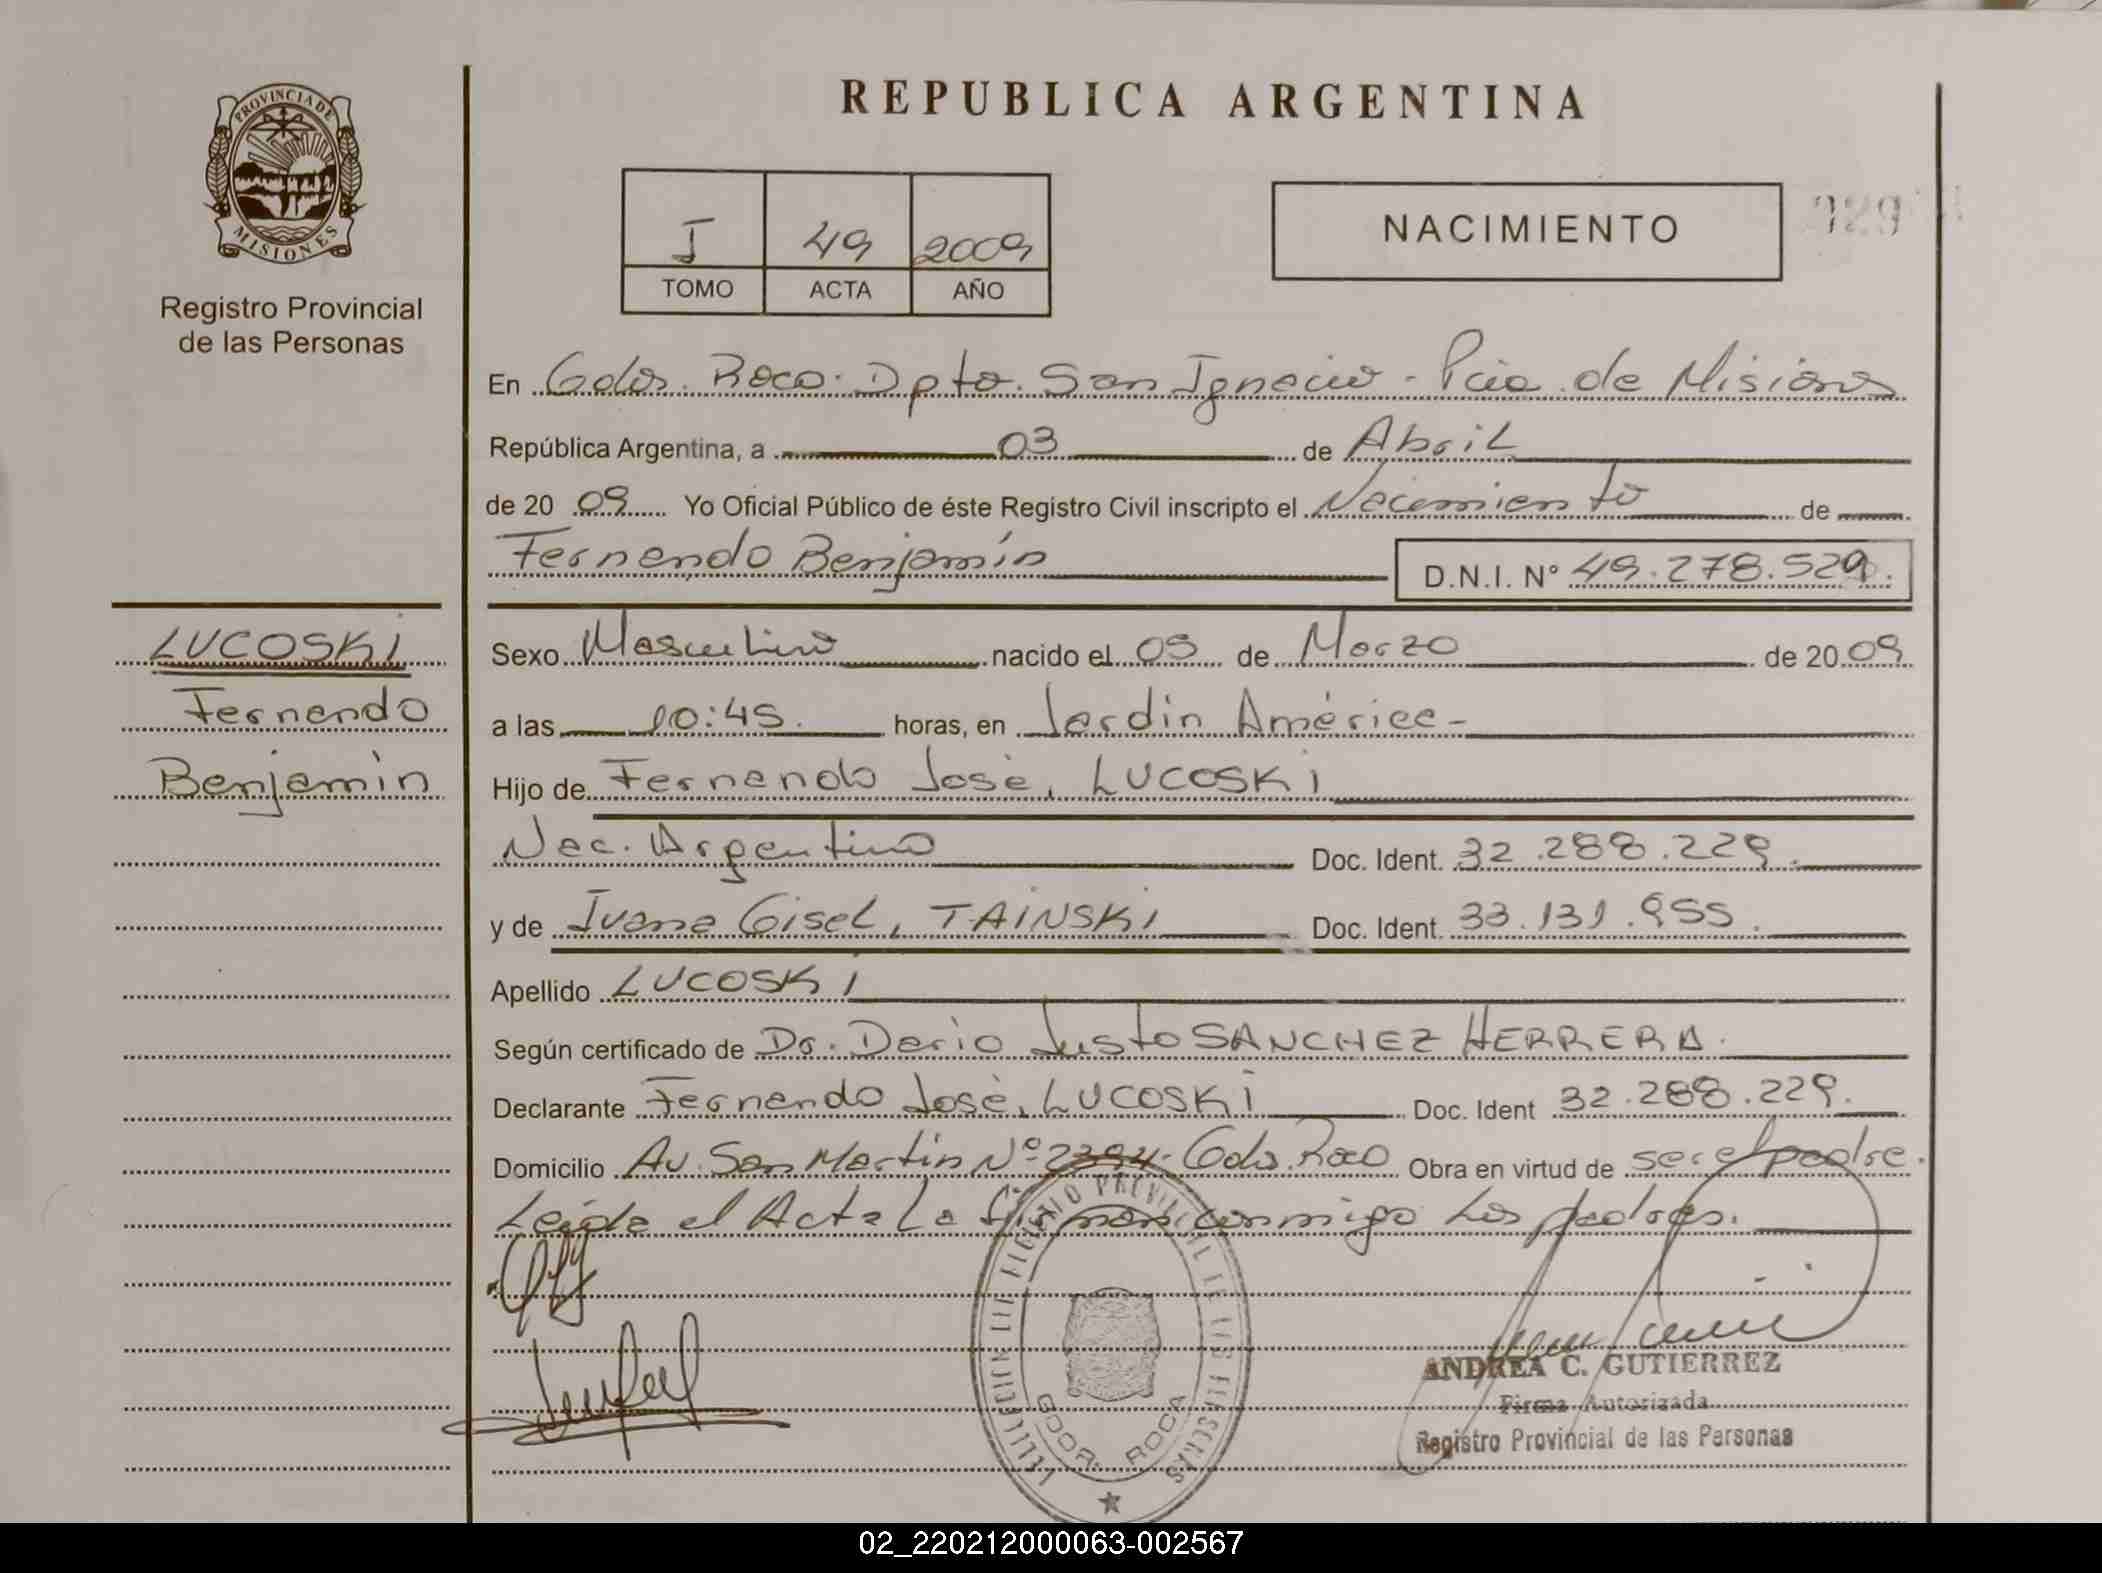 REPUBLICA ARGENTINA
PROVINCIA DE
MISIONES
Registro Provincial
de las Personas
I 49 2009
TOMO ACTA AÑO
NACIMIENTO
En Gdor. Roca. Dpto. San Ignacio - Pcia. de Misiones
República Argentina, a 03 de Abril
de 20 09 Yo Oficial Público de éste Registro Civil inscripto el Nacimiento de
Fernando Benjamín
D.N.I. N° 49.278.529.
LUCOSKI
Fernando
Benjamín
Sexo Masculino nacido el 09 de Marzo de 20 09
a las 10:45. horas, en Jardín América-
Hijo de Fernando José, LUCOSKI
Nac. Argentino Doc. Ident. 32.288.229.
y de Ivana Gisel, TAINSKI Doc. Ident. 33.131.955.
Apellido LUCOSKI
Según certificado de Dr. Dario Justo SANCHEZ HERRERA.
Declarante Fernando José, LUCOSKI Doc. Ident 32.288.229.
Domicilio Av. San Martin Nº 2394- Gdor. Roca Obra en virtud de ser el padre.
Leida el Acta La firman conmigo Los padres.
GDOR. ROCA
ANDREA C. GUTIERREZ
Firma Autorizada
Registro Provincial de las Personas
02_220212000063-002567